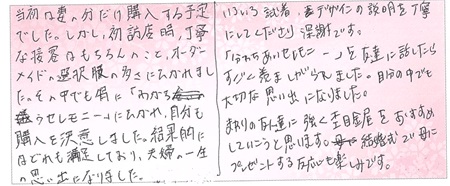 当初は妻の分だけ購入する予定
でした。しかし、初訪店時、丁寧
な接客はもちろんのこと、オーダー
メイドの選択肢の多さにひかれまし
た。その中でも特に「わかち
あうセレモニー」にひかれ、自分も
購入を決意しました。結果的に
はとても満足しており、夫婦の一生
の思い出になりました。
いろいろ試着・デザインの説明を丁寧
にしてくださり、深謝です。
「わかちあいセレモニー」を友達に話したら
すごく羨ましがられました。自分の中でも
大切な思い出になりました。
まわりの友達に強く杢目金屋をおすすめ
していこうと思います。結婚式で母に
プレゼントする反応も楽しみです。